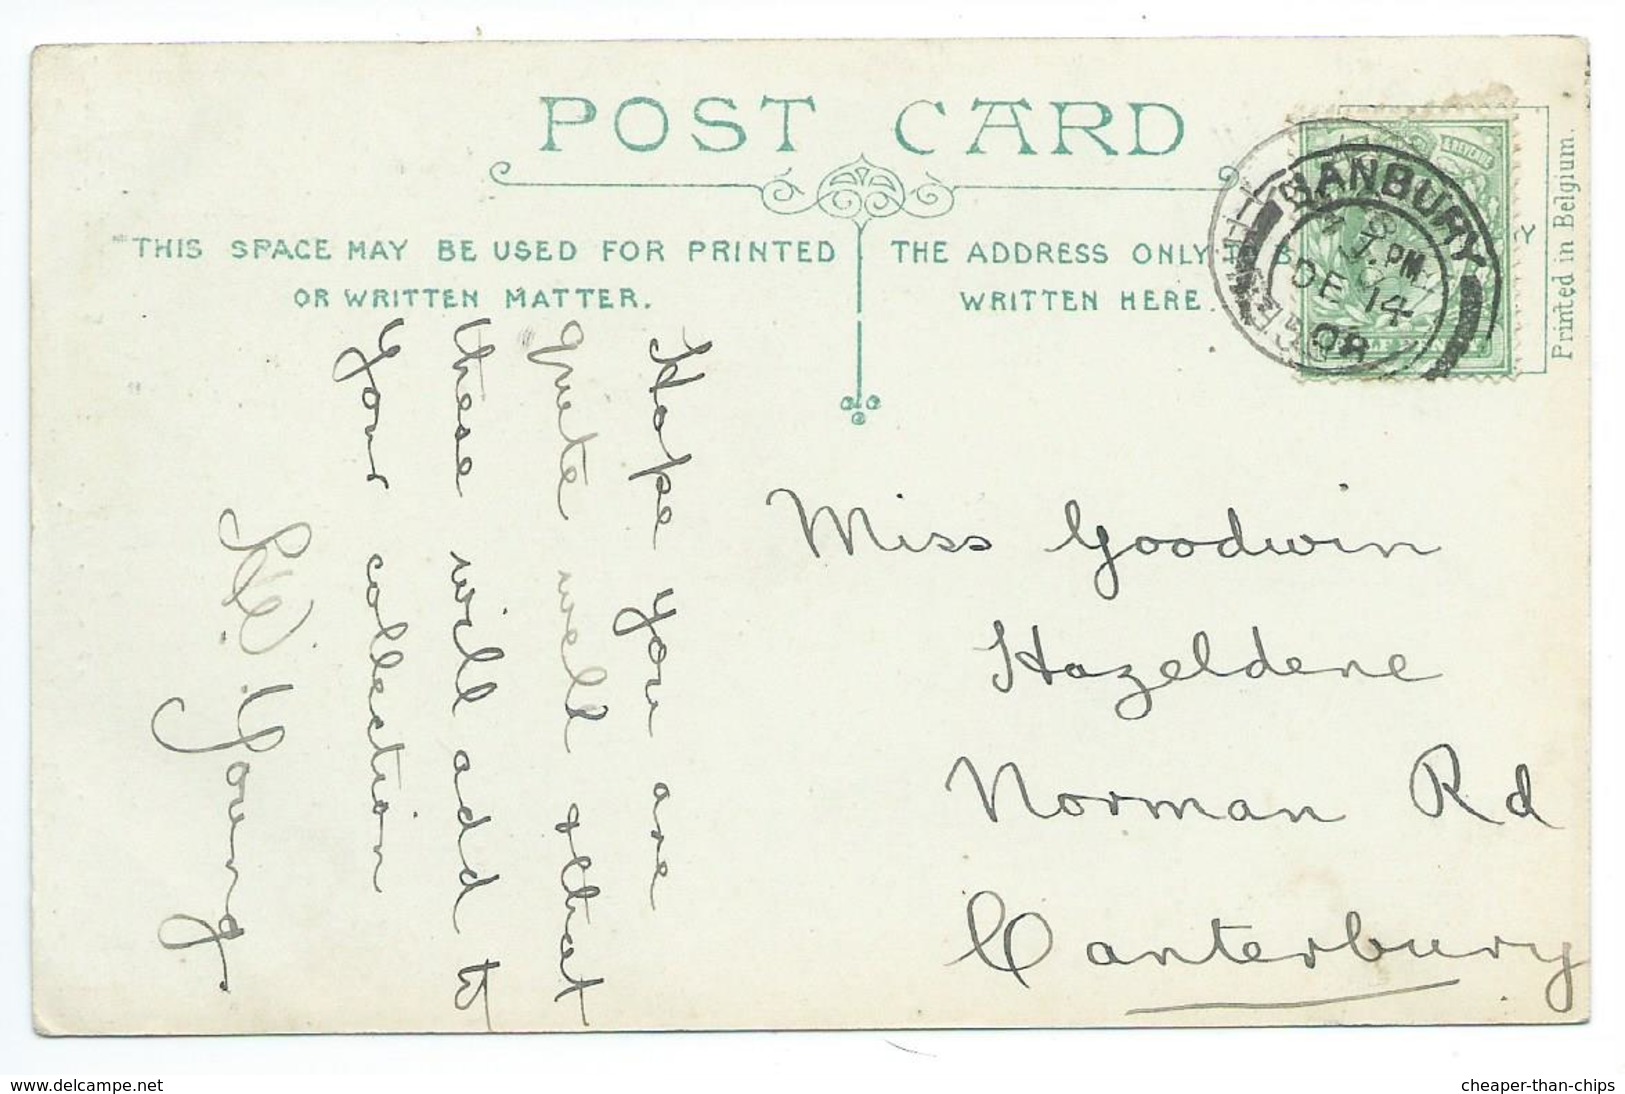 POST CARD
THIS SPACE MAY BE USED FOR PRINTED
OR WRITTEN MATTER.
THE ADDRESS ONLY B
WRITTEN HERE
Printed in Belgium.
Y
& REVENUE
HANBURY
7. PM
DE 14
08
Hope you are
quite well & that
these will add to
your collection
Young.
Miss Goodwin
Hazeldene
Norman Rd
Canterbury
www.delcampe.net
cheaper-than-chips